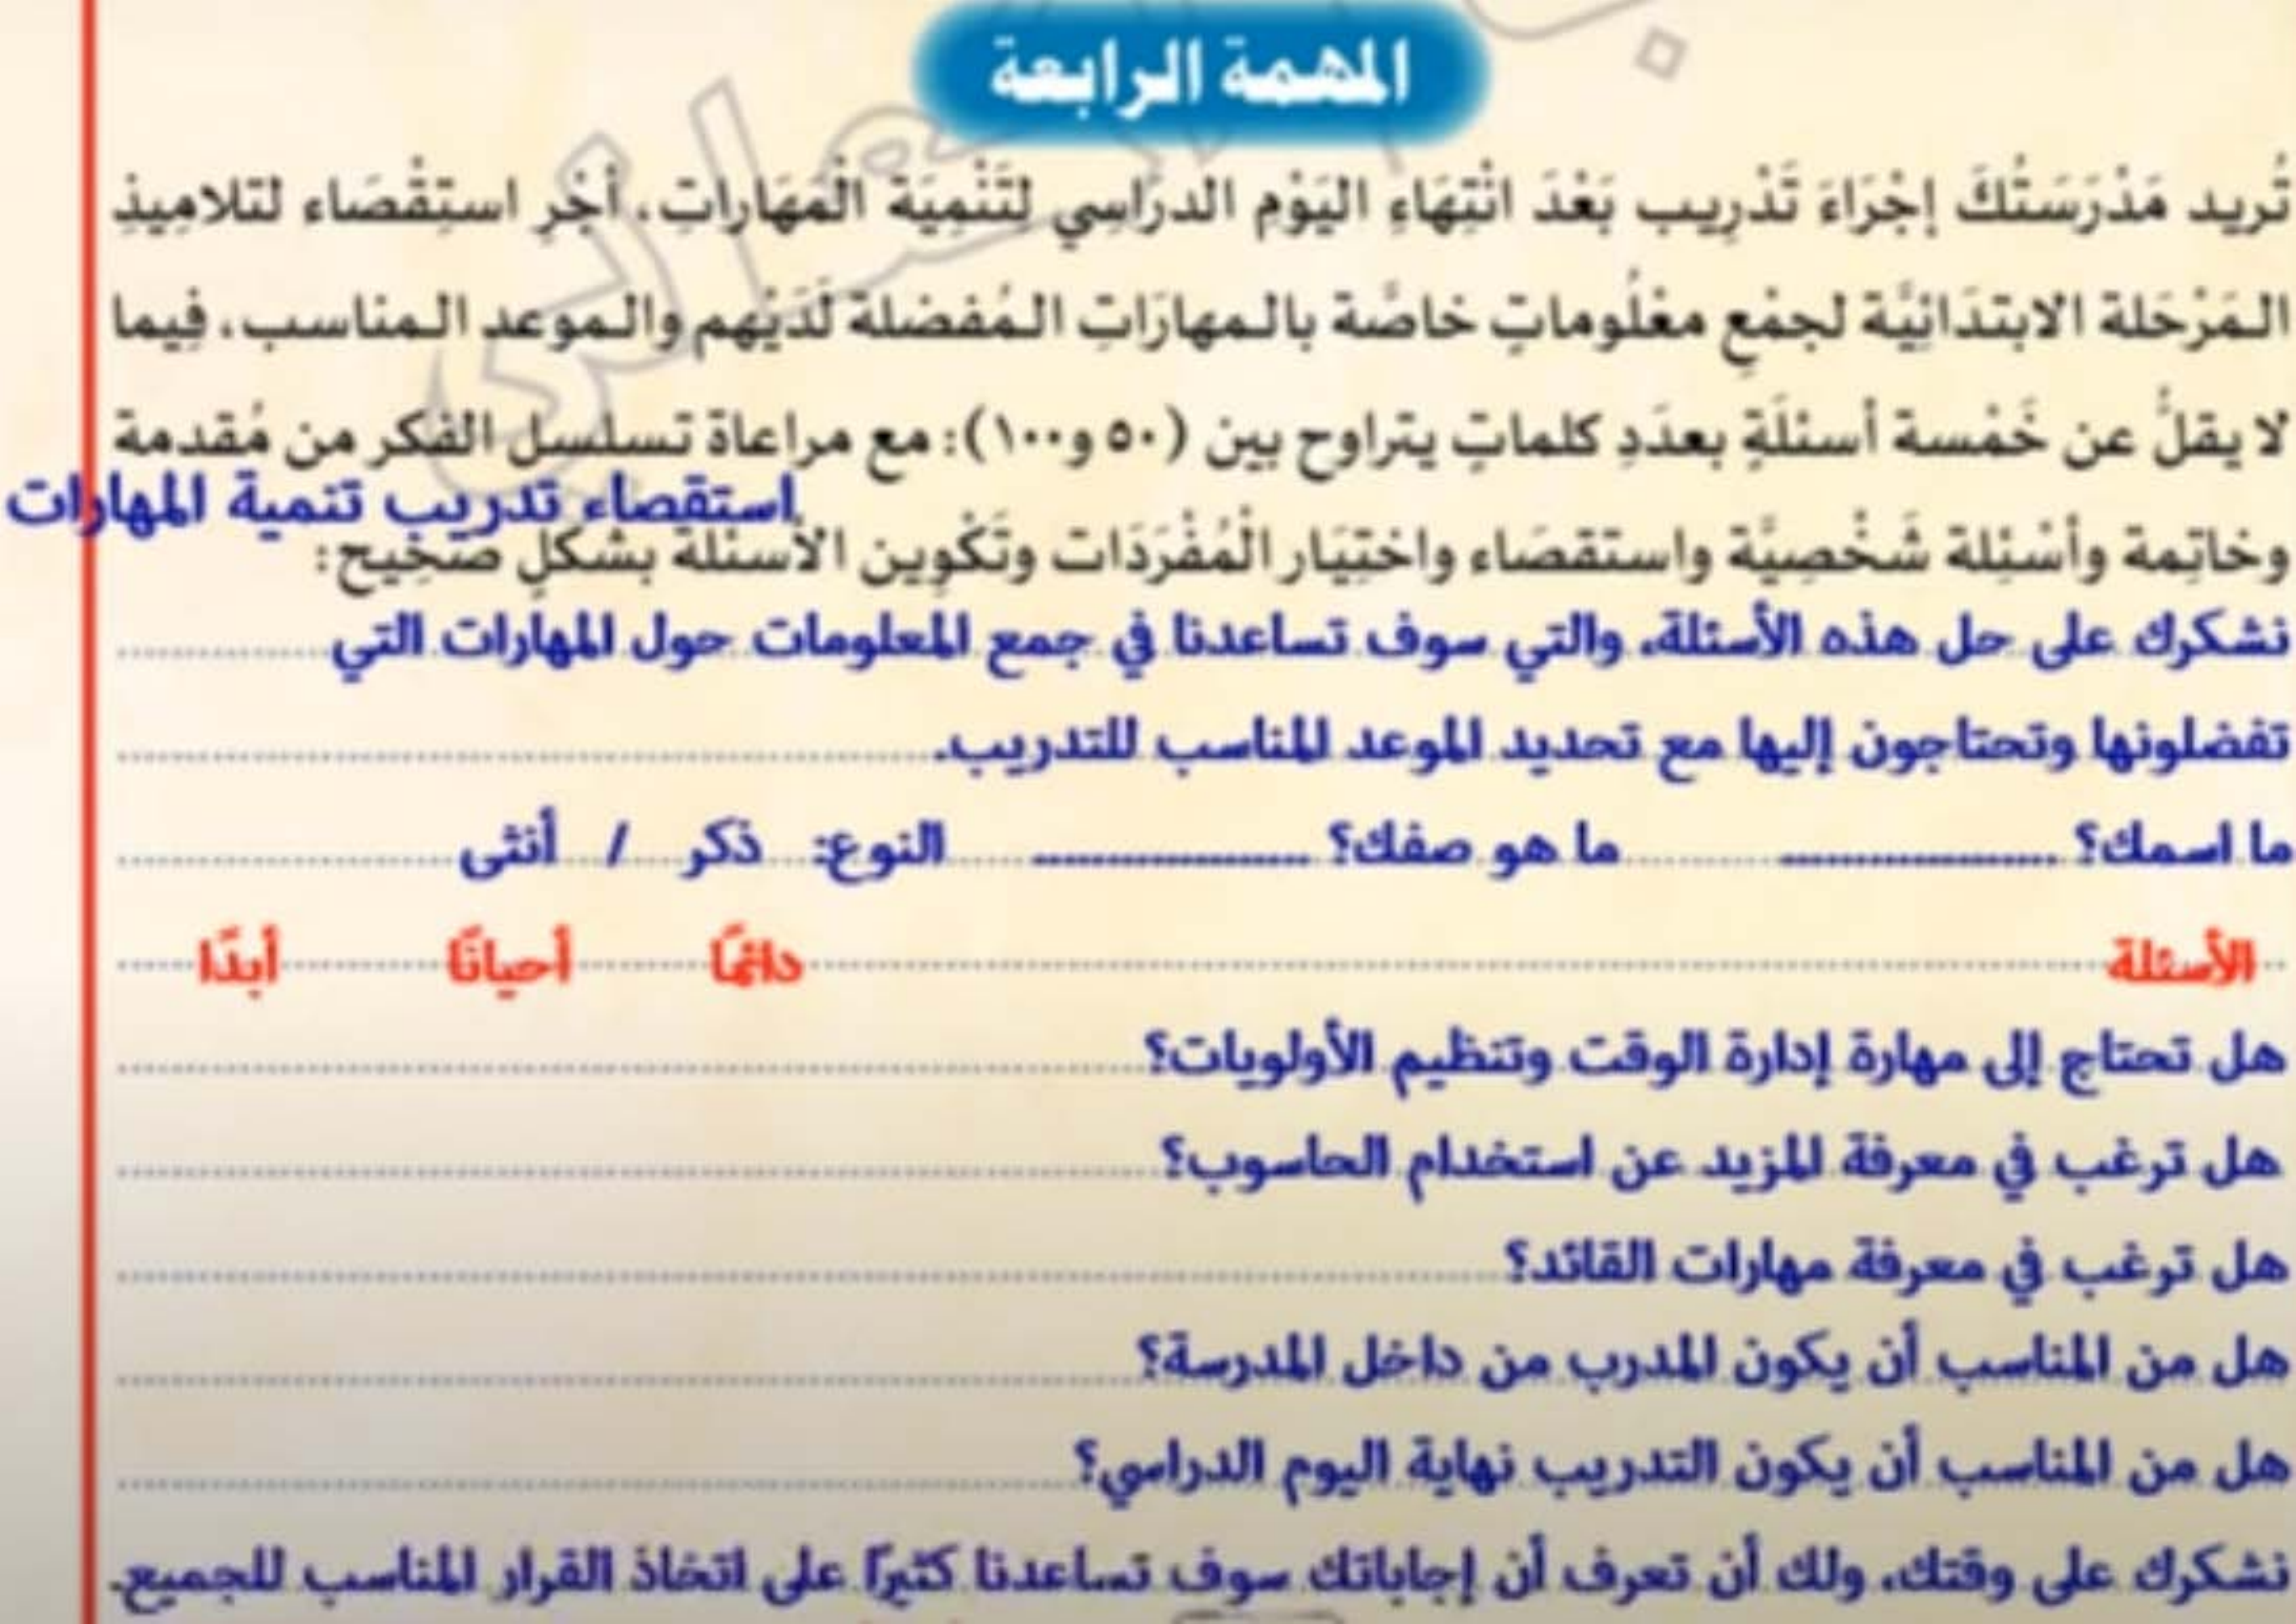 المهمة الرابعة
تُريد مَدْرَسَتُكَ إجْرَاءَ تَدْرِيب بَعْدَ انْتِهَاءِ اليَوْم الدرَاسِي لتَنْمِيَة الْمَهَاراتِ، أجْرِ استِقْصَاء لتلامِيذِ
المَرْحَلة الابتدَائِيَّة لجمْعِ معْلُوماتٍ خاصَّة بالمهارَاتِ المُفضلة لَدَيْهم والموعد المناسب، فِيما
لا يقلُّ عن خَمْسة أسئلَةٍ بعدَدِ كلماتٍ يتراوح بين (٥٠ و١٠٠): مع مراعاة تسلسل الفكر من مُقدمة
استقصاء تدريب تنمية المهارات
وخاتِمة وأسْئِلة شَخْصِيَّة واستقصَاء واختِيَار الْمُفْرَدَات وتَكْوِين الأسئلة بشكْلٍ صَحِيح:
نشكرك على حل هذه الأسئلة، والتي سوف تساعدنا في جمع المعلومات حول المهارات التي
تفضلونها وتحتاجون إليها مع تحديد الموعد المناسب للتدريب.
ما اسمك؟ ............... ما هو صفك؟ ............... النوع: ذكر / أنثى
الأسئلة دائمًا أحيانًا أبدًا
هل تحتاج إلى مهارة إدارة الوقت وتنظيم الأولويات؟
هل ترغب في معرفة المزيد عن استخدام الحاسوب؟
هل ترغب في معرفة مهارات القائد؟
هل من المناسب أن يكون المدرب من داخل المدرسة؟
هل من المناسب أن يكون التدريب نهاية اليوم الدراسي؟
نشكرك على وقتك، ولك أن تعرف أن إجاباتك سوف تساعدنا كثيرًا على اتخاذ القرار المناسب للجميع.